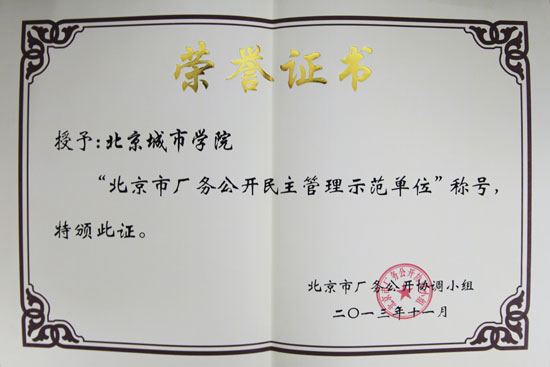 荣誉证书
授予:北京城市学院
“北京市厂务公开民主管理示范单位”称号，
特颁此证。
北京市厂务公开协调小组
二〇一三年十一月